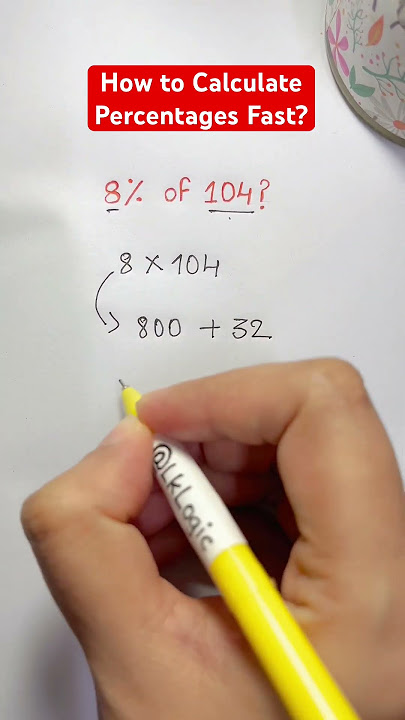 How to Calculate
Percentages Fast?
8% of 104?
8 × 104
800 + 32
@LkLogic